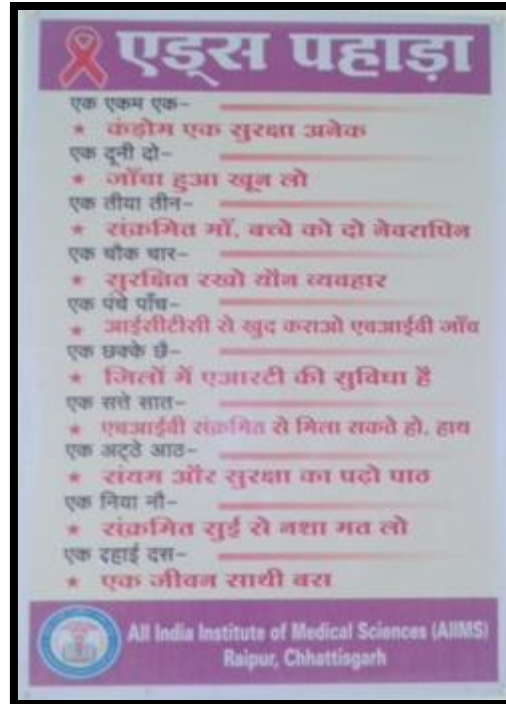 एड्स पहाड़ा
एक एकम एक-
★ कंडोम एक सुरक्षा अनेक
एक दूनी दो-
★ जाँचा हुआ खून लो
एक तीया तीन-
★ संक्रमित माँ, बच्चे को दो नेवरापिन
एक चौक चार-
★ सुरक्षित रखो यौन व्यवहार
एक पंचे पाँच-
★ आईसीटीसी से खुद कराओ एचआईवी जाँच
एक छक्के छै-
★ जिलों में एआरटी की सुविधा है
एक सत्ते सात-
★ एचआईवी संक्रमित से मिला सकते हो, हाथ
एक अट्ठे आठ-
★ संयम और सुरक्षा का पढ़ो पाठ
एक निया नौ-
★ संक्रमित सुई से नशा मत लो
एक दहाई दस-
★ एक जीवन साथी बस
All India Institute of Medical Sciences (AIIMS)
Raipur, Chhattisgarh